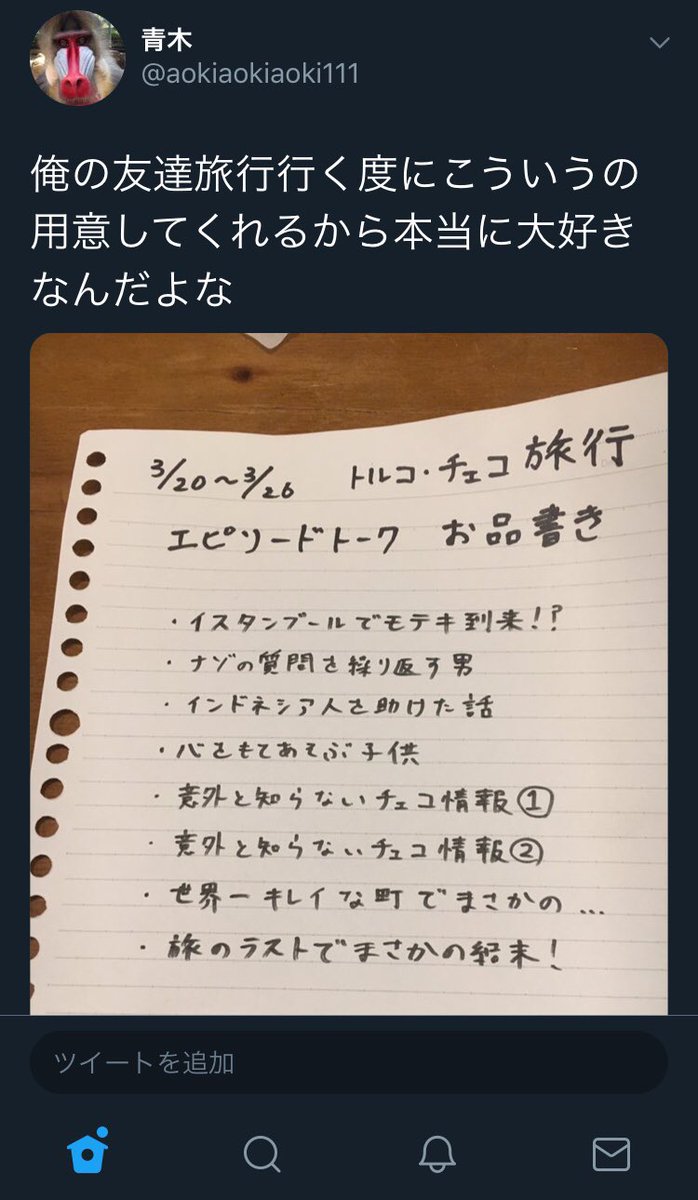 青木
@aokiaokiaoki111
俺の友達旅行行く度にこういうの
用意してくれるから本当に大好き
なんだよな
3/20〜3/26 トルコ・チェコ旅行
エピソードトーク お品書き
・イスタンブールでモテキ到来!?
・ナゾの質問を繰り返す男
・インドネシア人を助けた話
・心をもてあそぶ子供
・意外と知らないチェコ情報①
・意外と知らないチェコ情報②
・世界一キレイな町でまさかの…
・旅のラストでまさかの結末!
ツイートを追加